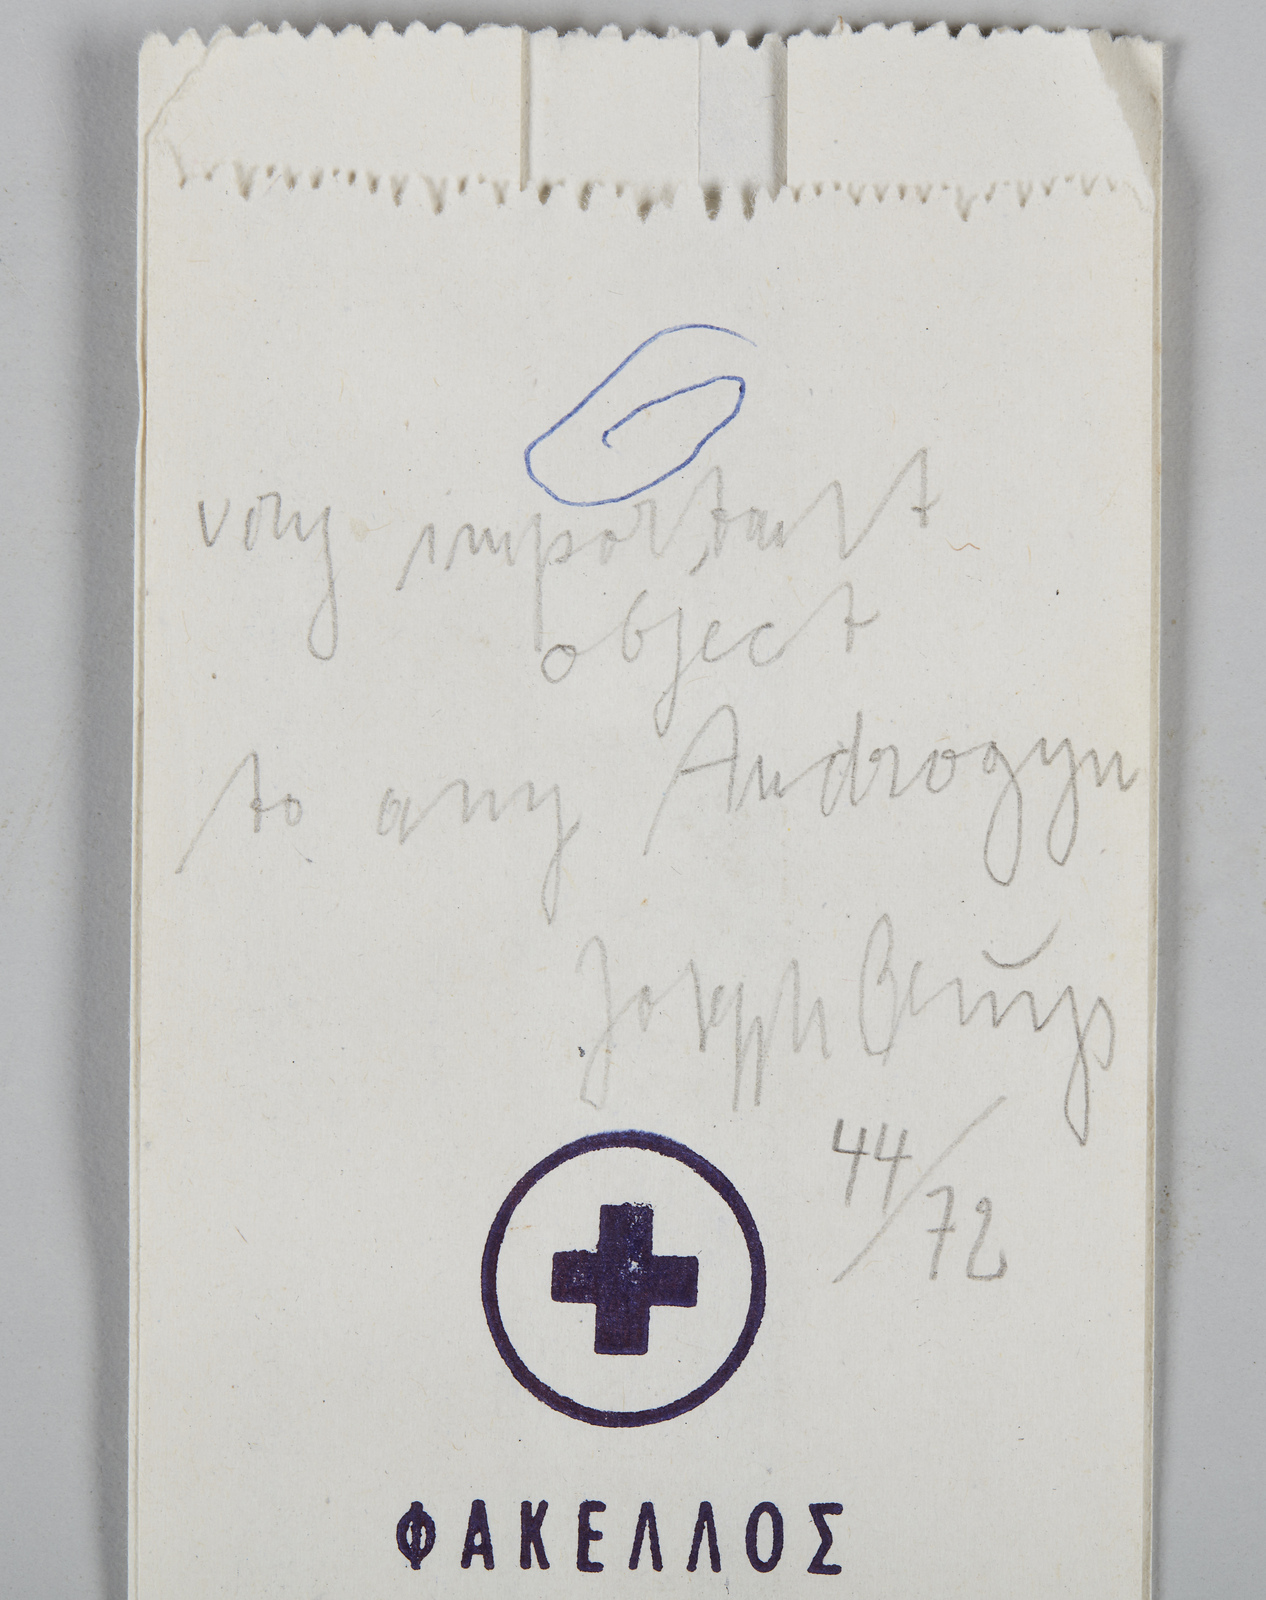 very important
object
to any Androgyn
Joseph Beuys
44/72
ΦΑΚΕΛΛΟΣ